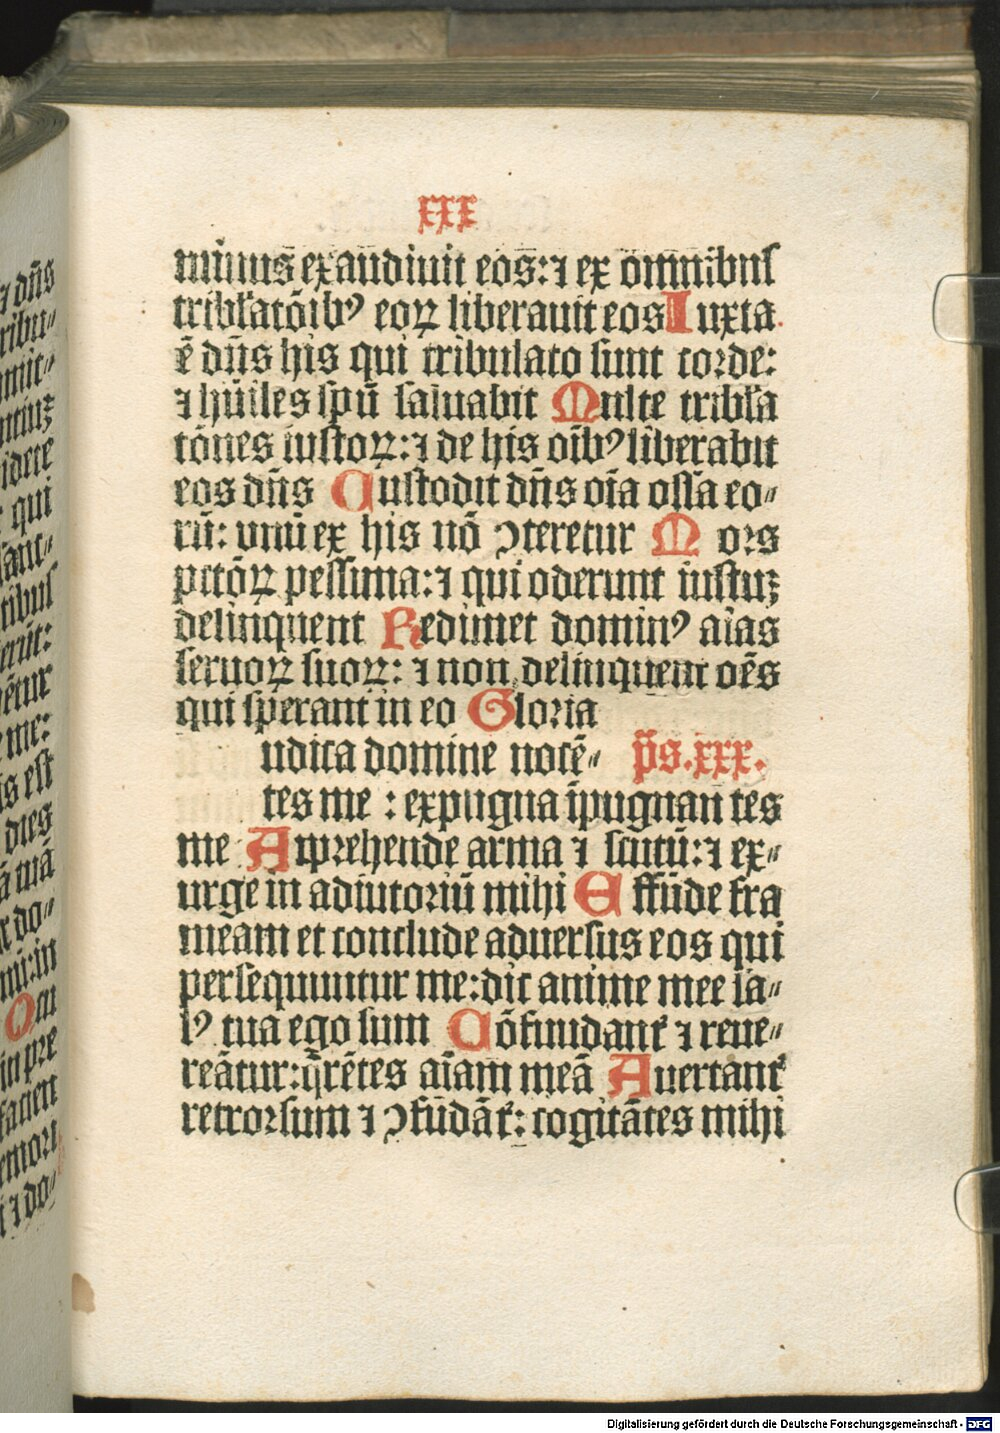 xxx
minus exaudiuit eos: ⁊ ex om̄nibus
tribl'atōibꝰ eoꝝ liberauit eos Iuxta
ē dn̄s his qui tribulato sunt corde:
⁊ hūiles spū saluabit Multe tribl'a
tōnes iustoꝝ: ⁊ de his oībꝰ liberabit
eos dn̄s Custodit dn̄s oīa ossa eo⸗
rū: vnū ex his nō ↄteretur Mors
pctōꝝ pessima: ⁊ qui oderunt iustuꝫ
delinquent Redimet dominꝰ aīas
seruoꝝ suoꝝ: ⁊ non delinquent oēs
qui sperant in eo Gloria
udica domine nocē⸗ ps. xxx.
tes me : expugna īpugnan tes
me Apprehende arma ⁊ scutū: ⁊ ex⸗
urge in adiutoriū mihi Effūde fra
meam et conclude aduersus eos qui
persequuntur me: dic anime mee sa⸗
lꝰ tua ego sum Cōfundant᷑ ⁊ reue⸗
reātur: q̄rētes aīam meā Auertant᷑
retrorsum ⁊ ↄfūdāt᷑: cogitātes mihi
Digitalisierung gefördert durch die Deutsche Forschungsgemeinschaft - DFG